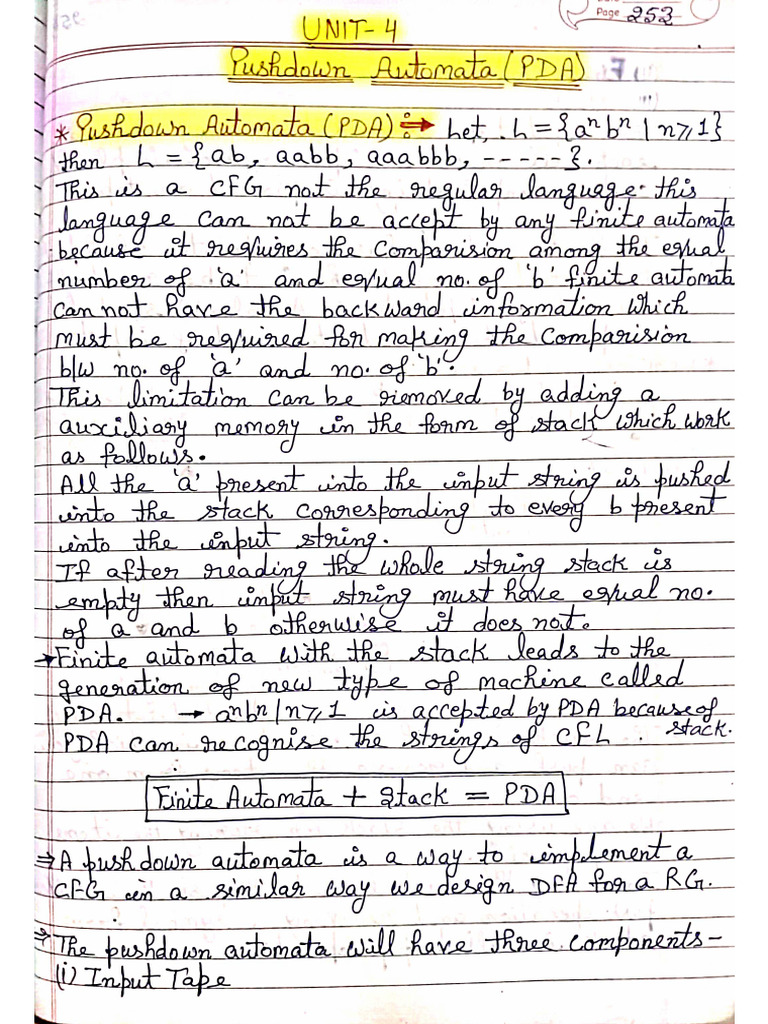 Page 253
UNIT-4
Pushdown Automata (PDA)
* Pushdown Automata (PDA) :→ Let, L = {aⁿbⁿ | n≥1}
then L = {ab, aabb, aaabbb, -----}.
This is a CFG not the regular language. this
language can not be accept by any finite automata
because it requires the comparision among the equal
number of 'a' and equal no. of 'b' finite automata
can not have the backward information which
must be required for making the comparision
b/w no. of 'a' and no. of 'b'.
This limitation can be removed by adding a
auxiliary memory in the form of stack which work
as follows.
All the 'a' present into the input string is pushed
into the stack corresponding to every b present
into the input string.
If after reading the whole string stack is
empty then input string must have equal no.
of a and b otherwise it does not.
→ Finite automata with the stack leads to the
generation of new type of machine called
PDA. → aⁿbⁿ | n≥1 is accepted by PDA because of
PDA can recognise the strings of CFL. stack.
Finite Automata + Stack = PDA
⇒ A pushdown automata is a way to implement a
CFG in a similar way we design DFA for a RG.
⇒ The pushdown automata will have three components-
(i) Input Tape